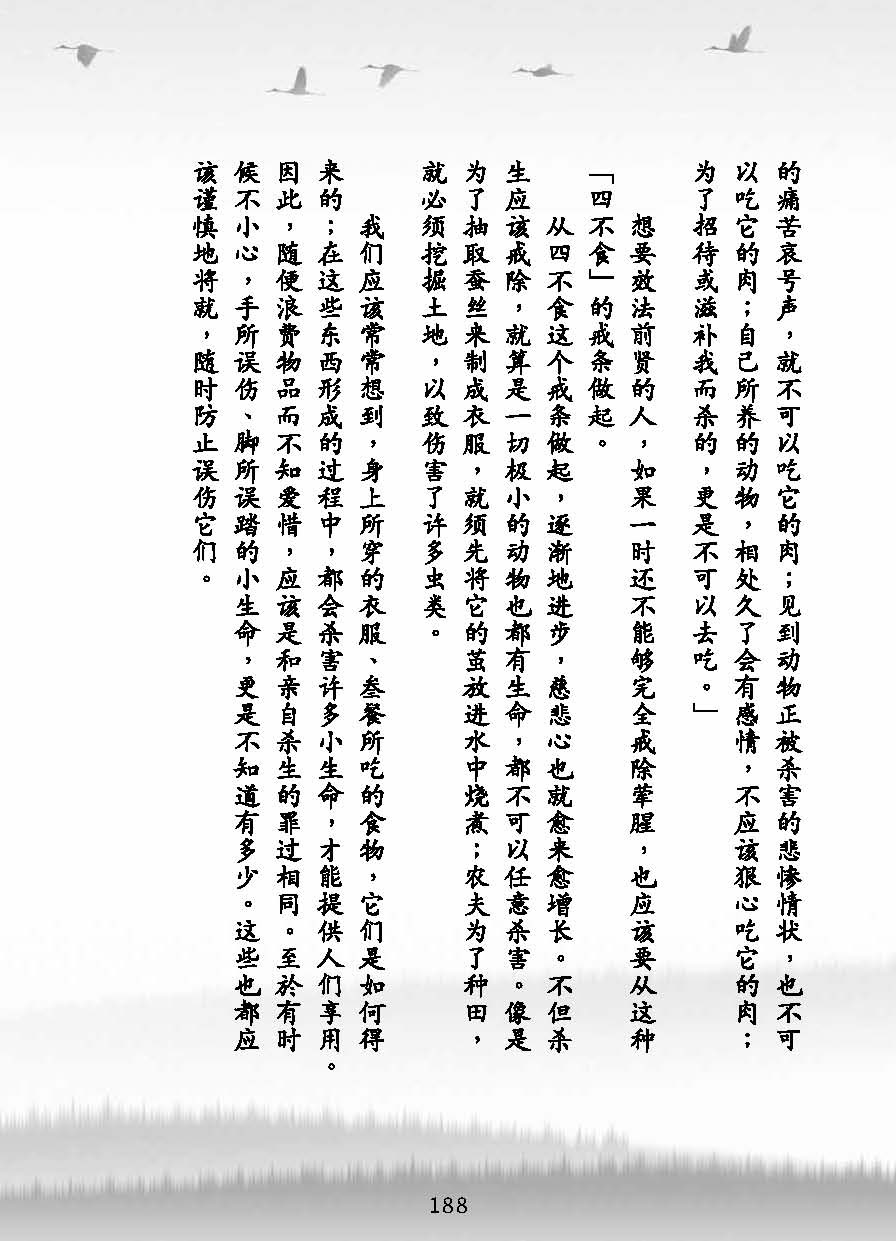 的痛苦哀号声，就不可以吃它的肉；见到动物正被杀害的悲惨情状，也不可
以吃它的肉；自己所养的动物，相处久了会有感情，不应该狠心吃它的肉；
为了招待或滋补我而杀的，更是不可以去吃。」
想要效法前贤的人，如果一时还不能够完全戒除荤腥，也应该要从这种
「四不食」的戒条做起。
从四不食这个戒条做起，逐渐地进步，慈悲心也就愈来愈增长。不但杀
生应该戒除，就算是一切极小的动物也都有生命，都不可以任意杀害。像是
为了抽取蚕丝来制成衣服，就须先将它的茧放进水中烧煮；农夫为了种田，
就必须挖掘土地，以致伤害了许多虫类。
我们应该常常想到，身上所穿的衣服、叁餐所吃的食物，它们是如何得
来的；在这些东西形成的过程中，都会杀害许多小生命，才能提供人们享用。
因此，随便浪费物品而不知爱惜，应该是和亲自杀生的罪过相同。至於有时
候不小心，手所误伤、脚所误踏的小生命，更是不知道有多少。这些也都应
该谨慎地将就，随时防止误伤它们。
188